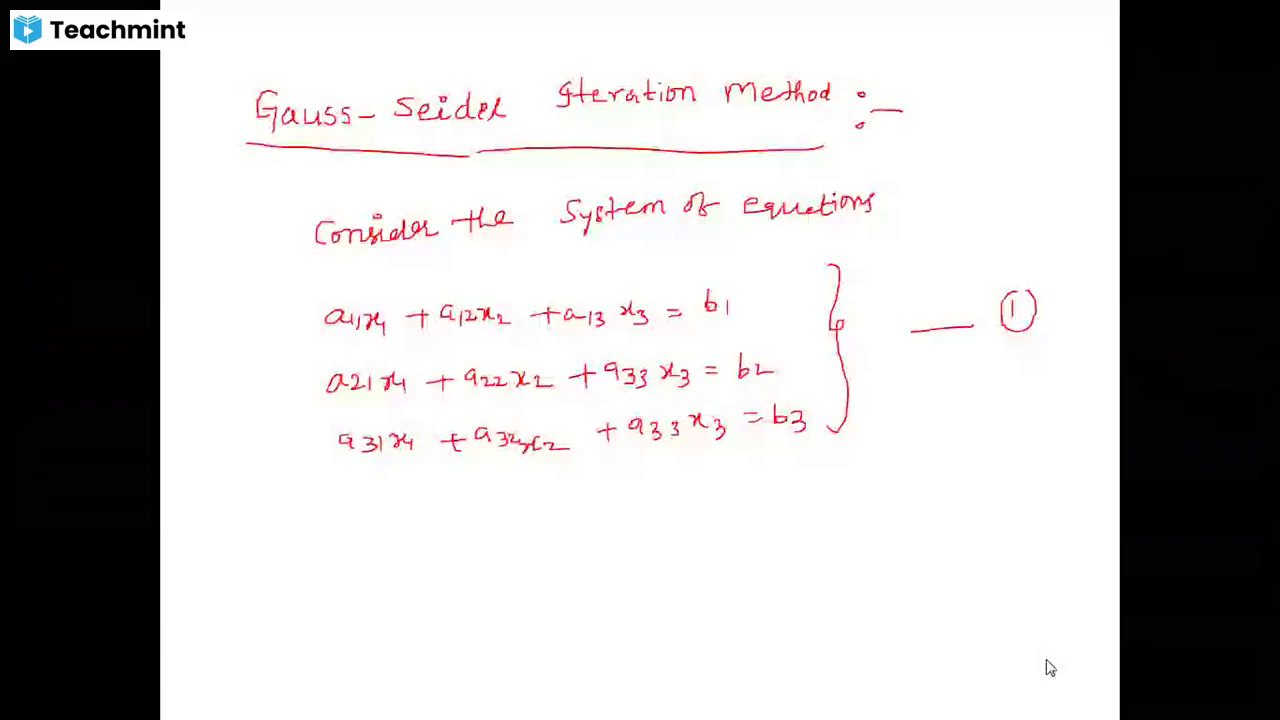 Teachmint
Gauss-Seidel Iteration Method :-
Consider the System of equations
a11x1 + a12x2 + a13 x3 = b1
a21x1 + a22x2 + a33 x3 = b2
a31x1 + a32x2 + a33 x3 = b3
— 1